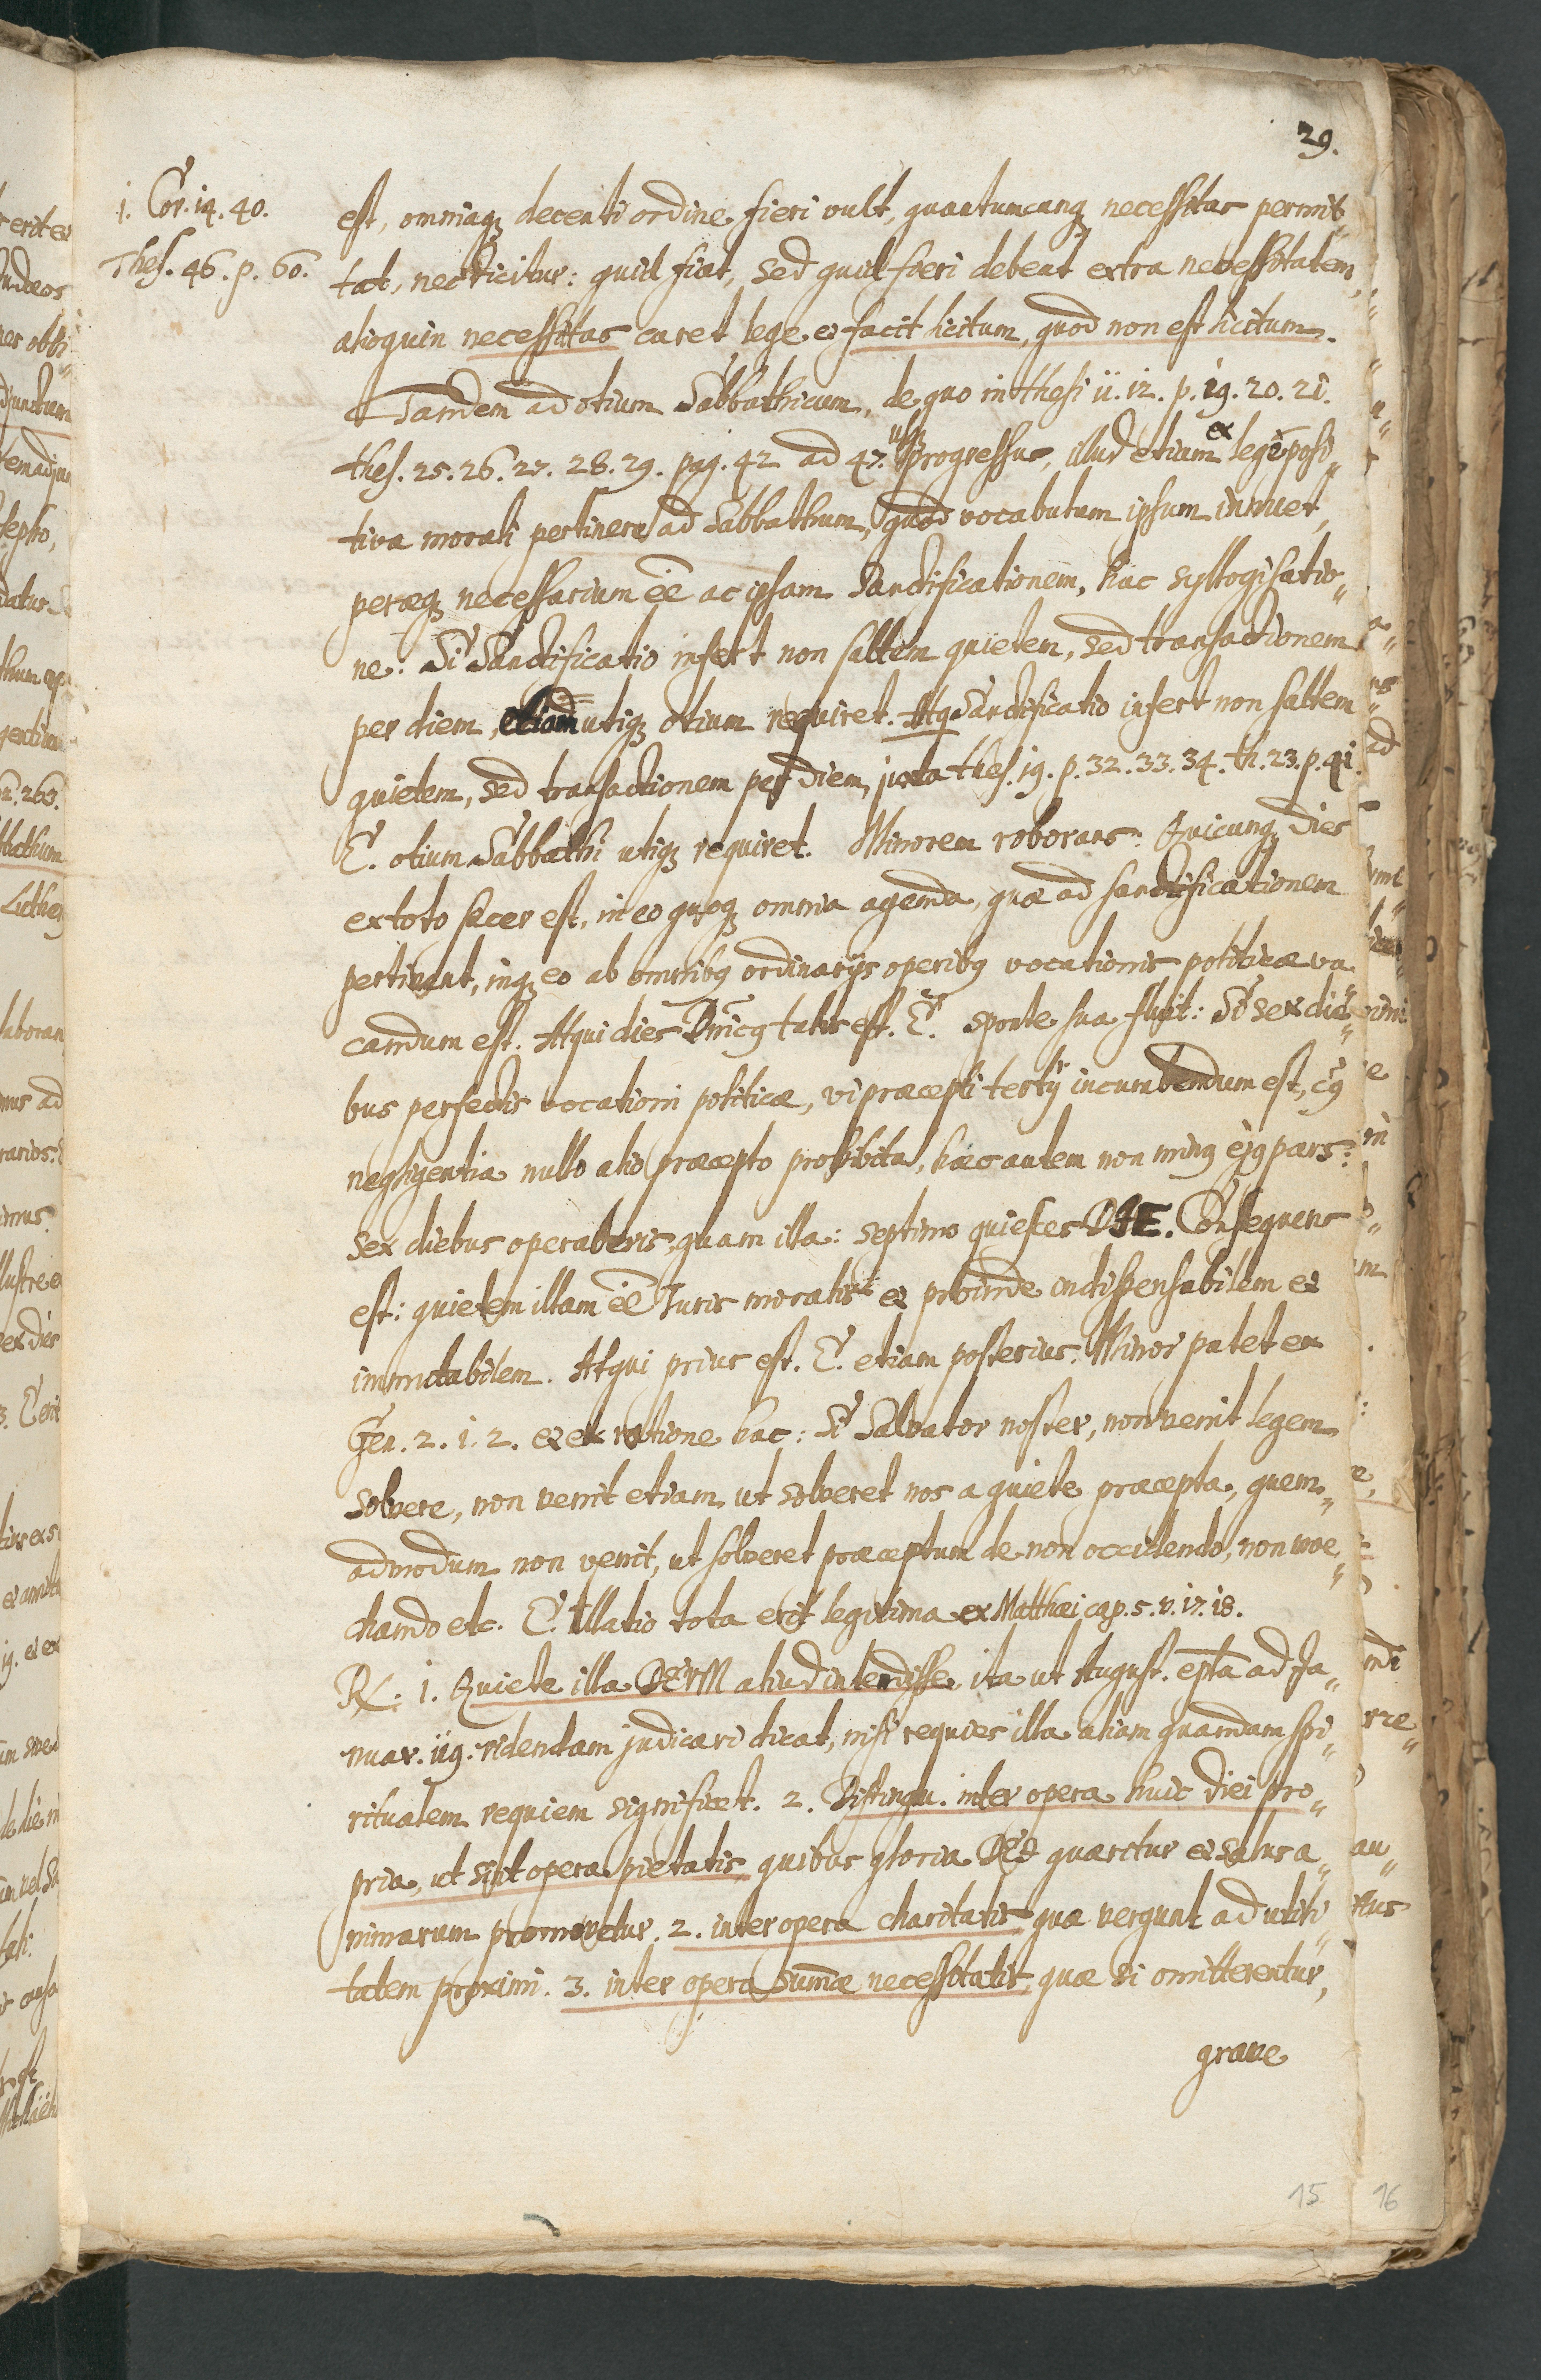 29.
1. Cor. 14. 40.
Thes. 46. p. 60.
est, omniaq; decenti ordine fieri vult, quantumcunq; necessitas permit„
tat, nec dicitur: quid fiat, sed quid fieri debeat extra necessitatem,
alioquin necessitas caret lege et facit licitum, quod non est licitum.
Tandem ad otium Sabbathicum, de quo in thesi 11. 12. p. 19. 20. 21.
thes. 25. 26. 27. 28. 29. pag. 42 ad 47. usq; progressus, illud etiam ex lege posi„
tiva morali pertinere ad Sabbathum, quod vocabulum ipsum innuet,
peræq; necessarium eē ac ipsam Sanctificationem, hac syllogisatio„
ne: Si Sanctificatio infert non saltem quietem, sed transactionem
per diem, utiq; otium requiret. Atq Sanctificatio infert non saltem
quietem, sed transactionem per diem, juxta thes. 19. p. 32. 33. 34. th. 23. p. 41.
E. otium Sabbathi utiq; requiret. Minorem roborans: Quicunq; dies
ex toto sacer est, in eo quoq; omnia agenda, quæ ad sanctificationem
pertinent, inq; eo ab omnibq ordinarijs operibq vocationis politicæ va„
candum est. Atqui dies Dnicq talis est. E. sponte sua fluit: Si sex die„
bus perfectis vocationi politicæ, vi præcepti tertij incumbendum est, cq
negligentia nullo alio præcepto prohibita, hæc autem non minq ejq pars:
sex diebus operaberis, quam illa: septimo quiesces DIE. Consequens
est: quietem illam eē Juris moralis et proinde indispensabilem et
immutabilem. Atqui prius est. E. etiam posterius. Minor patet ex
Gen. 2. 1. 2. et ex ratione hac: Si Salvator noster, non venit legem
solvere, non venit etiam ut solveret nos a quiete præcepta, quem„
admodum non venit, ut solveret præceptum de non occidendo, non moe„
chando etc. E. Illatio tota erit legitima ex Matthæi cap. 5. v. 17. 18.
R. 1. Quiete illa DEUM aliud intendisse, ita ut August. epta ad Ja„
nuar. 119. ridendam judicari dicat, nisi requies illa aliam quamdam spi„
ritualem requiem significet. 2. Distingu. inter opera huic diei pro„
pria, ut sint opera pietatis, quibus gloria DEI quæritur et salus a„
nimarum promovetur. 2. inter opera charitatis quæ vergunt ad utili„
tatem proximi. 3. inter opera sumæ necessitatis, quæ si omitterentur,
grave
15
16